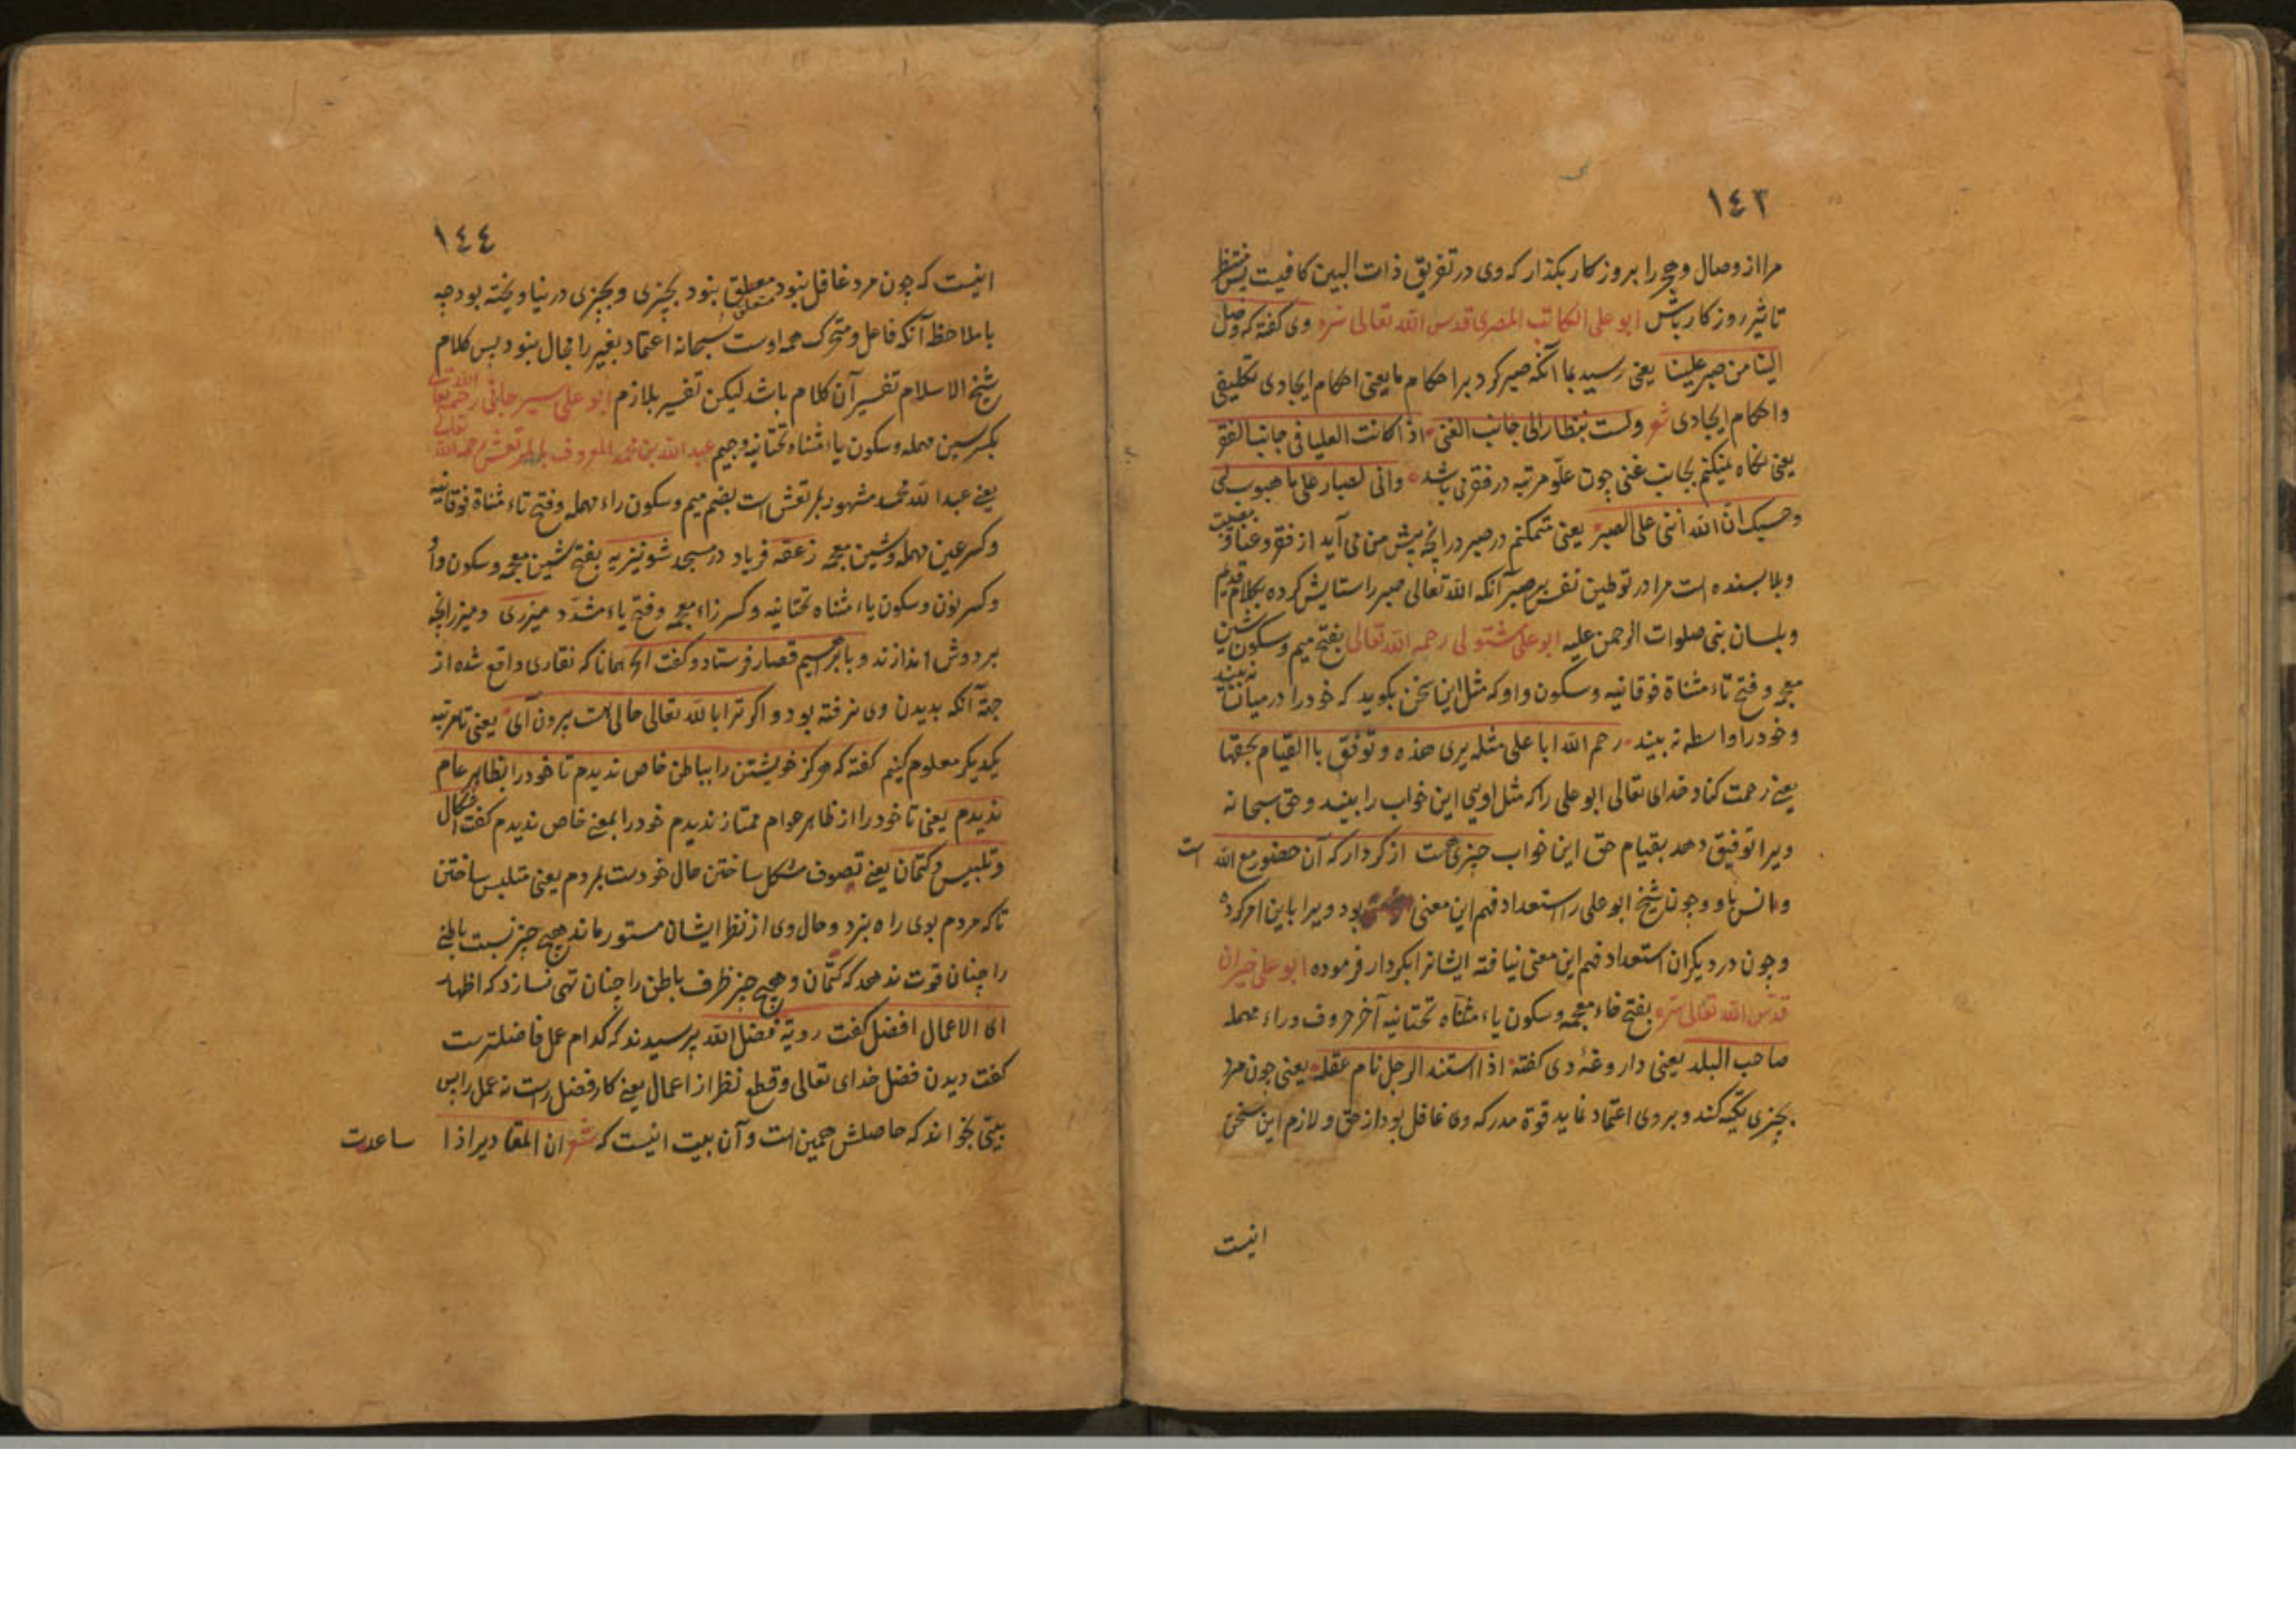 ١٤٣
مرا از وصال و هجر را بروزکار بکذار که وی در تفریق ذات البین کافیست پس منتظر
تاثیر روزکار باش ابو علی الکاتب المصری قدس الله تعالی سره وی کفته که وصل
الینا من صبر علینا یعنی رسید بما آنکه صبر کرد بر احکام ما یعنی احکام ایجادی تکلیفی
واحکام ایجادی شعر ولست بنظار الی جانب الغنی اذا کانت العلیا فی جانب الفقر
یعنی نکاه نمیکنم بجانب غنی چون علو مرتبه در فقر می باشد وانی لصبار علی ما
وحسبک ان الله اثنی علی الصبر یعنی متمکنم در صبر در انچه پیش من می آید از فقر وعنا و
وبلا بسنده است مرا در توطین نفس بر صبر آنکه الله تعالی صبر را ستایش کرده بکلام قدیم
وبلسان نبی صلوات الرحمن علیه ابو علی مشتولی رحمه الله تعالی بفتح میم وسکون شین
معجمه وفتح تاء مثناة فوقانیه وسکون واو که مثل این سخن بکوید که خود را در میان نه بیند
وخود را واسطه نه بیند رحم الله ابا علی مثله یری هذه وتوفق با القیام بحقها
یعنے رحمت کناد خدای تعالی ابو علی را که مثل اویی این خواب را بیند وحق سبحانه
ویرا توفیق دهد بقیام حق این خواب چیزی هست از کردار که آن حضور مع الله است
وانس باو وچون شیخ ابو علی را استعداد فهم این معنی بود ویرا باین امر کرده
وچون در دیکران استعداد فهم این معنی نیافته ایشانرا بکردار فرموده ابو علی خیران
قدس الله تعالی سره بفتح خاء معجمه وسکون یاء مثناه تحتانیه آخر حروف وراء مهمله
صاحب البلد یعنی داروغه وی کفته اذا استند الرجل نام عقله یعنی چون مرد
بچیزی تکیه کند وبروی اعتماد نماید قوة مدرکه وی غافل بود از حق ولازم این سخن
انیست
١٤٤
انیست که چون مرد غافل نبود متعلق نبود بچیزی وبچیزی در نیاویخته بود چه
با ملاحظ آنکه فاعل ومتحرک همه اوست سبحانه اعتماد بغیر را مجال نبود پس کلام
شیخ الاسلام تفسیر آن کلام باشد لیکن تفسیر بلازم ابو علی سیرجانی رحمه الله تعالی
بکسر سین مهمله وسکون یاء مثناه تحتانیه وجیم عبد الله بن محمد المعروف بالمرتعش رحمه الله تعالی
یعنے عبد الله محمد مشهور بمرتعش است بضم میم وسکون راء مهمله وفتح تاء مثناة فوقانیه
وکسر عین مهمله وشین معجمه زعقه فریاد در مسجد شونیزیه بفتح شین معجمه وسکون واو
وکسر نون وسکون یاء مثناه تحتانیه وکسر زاء معجمه وفتح یاء مشدد میزری ومیزر انچه
بر دوش اندازند وبا برهیم قصار فرستاد وکفت الخ همانا که نقاری واقع شده از
جهة آنکه بدیدن وی نرفته بود و اکر ترا با لله تعالی حالی هست بیرون آی یعنی تا مرتبه
یکدیکر معلوم کنیم کفته که هرکز خویشتن را بباطن خاص ندیدم تا خود را بظاهر عام
ندیدم یعنی تا خود را از ظاهر عوام ممتاز ندیدم خود را بمعنے خاص ندیدم کفت اشکال
وتلبیس وکتمان یعنے تصوف مشکل ساختن حال خودست بمردم یعنی متلبس ساختن
تا که مردم بوی راه نبرد وحال وی از نظر ایشان مستور ماند هیچ چیز نسبت باطنے
را چنان قوت ندهد که کتمان وهیچ چیز ظرف باطن را چنان تهی نسازد که اظهار
ای الاعمال افضل کفت رویة فضل الله پرسیدند که کدام عمل فاضلترست
کفت دیدن فضل خدای تعالی وقطع نظر از اعمال یعنے کار فضل راست نه عمل را پس
بیتی بخواند که حاصلش همین است وآن بیت انیست که شعر ان المقادیر اذا ساعدت